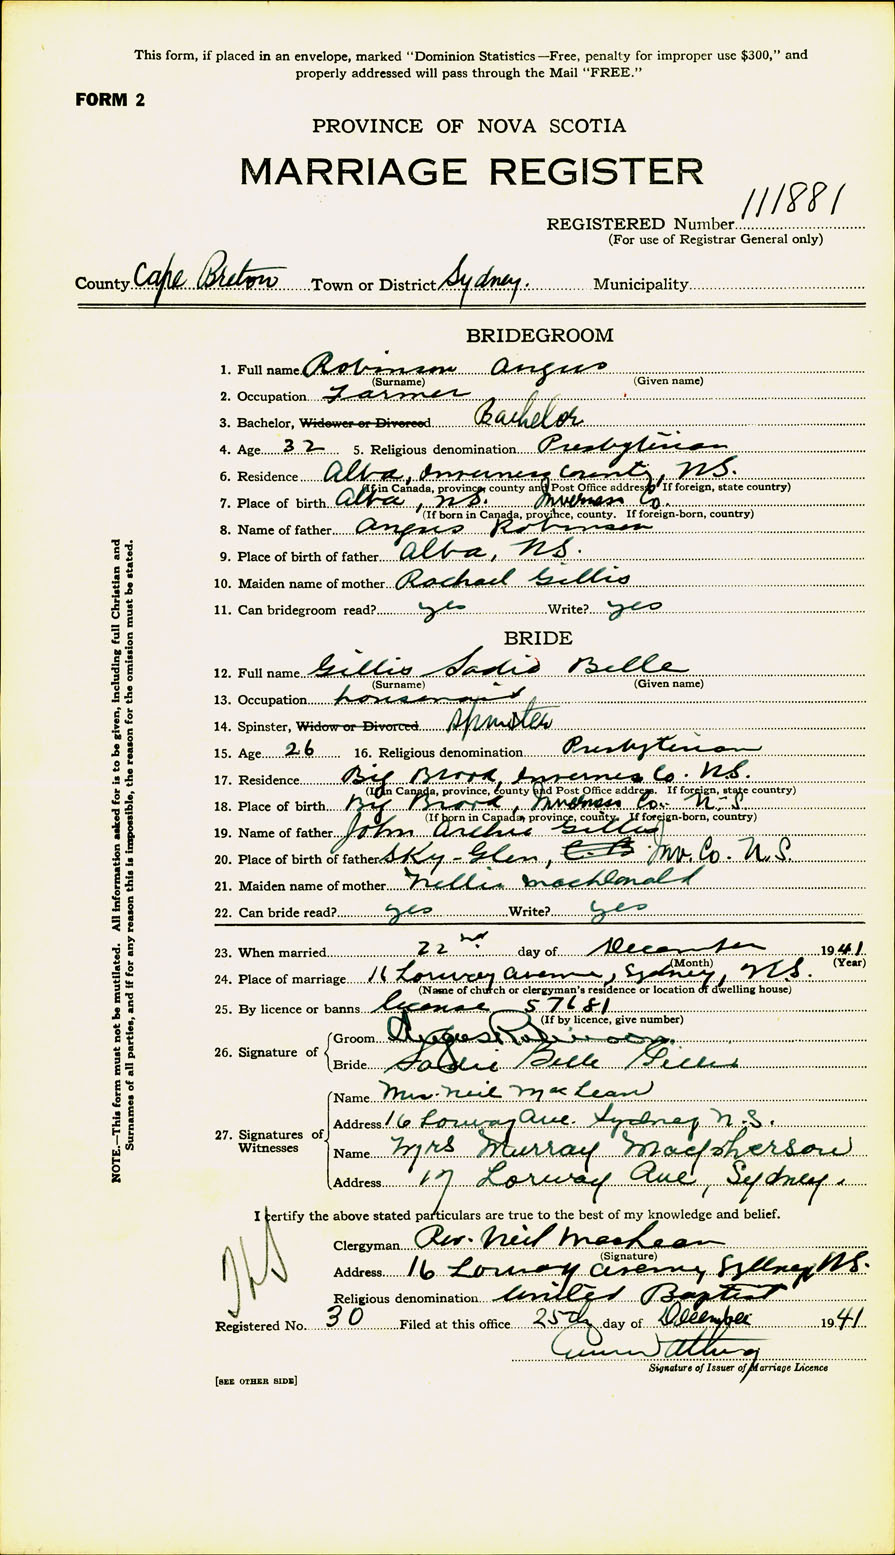 This form, if placed in an envelope, marked "Dominion Statistics—Free, penalty for improper use $300," and
properly addressed will pass through the Mail "FREE."
FORM 2
PROVINCE OF NOVA SCOTIA
MARRIAGE REGISTER
REGISTERED Number 111881
(For use of Registrar General only)
County Cape Breton Town or District Sydney. Municipality
BRIDEGROOM
1. Full name Robinson Angus
(Surname) (Given name)
2. Occupation Farmer
3. Bachelor, Widower or Divorced Bachelor
4. Age 32 5. Religious denomination Presbyterian
6. Residence Alba, Inverness County, N.S.
(If in Canada, province, county and Post Office address. If foreign, state country)
7. Place of birth Alba, N.S. Inverness Co.
(If born in Canada, province, county. If foreign-born, country)
8. Name of father Angus Robinson
9. Place of birth of father Alba, N.S.
10. Maiden name of mother Rachael Gillis
11. Can bridegroom read? yes Write? yes
BRIDE
12. Full name Gillis Sadie Belle
(Surname) (Given name)
13. Occupation housemaid
14. Spinster, Widow or Divorced Spinster
15. Age 26 16. Religious denomination Presbyterian
17. Residence Big Brook, Inverness Co. N.S.
(If in Canada, province, county and Post Office address. If foreign, state country)
18. Place of birth Big Brook, Inverness Co. N.S
(If born in Canada, province, county. If foreign-born, country)
19. Name of father John Archie Gillis
20. Place of birth of father Sky-Glen, C.B Inv. Co. N.S.
21. Maiden name of mother Nellie MacDonald
22. Can bride read? yes Write? yes
23. When married 22nd day of December 1941
(Month) (Year)
24. Place of marriage 16 Lorway Avenue, Sydney, N.S.
(Name of church or clergyman's residence or location of dwelling house)
25. By licence or banns license 57681
(If by licence, give number)
26. Signature of
Groom Angus Robinson.
Bride Sadie Belle Gillis
27. Signatures of Witnesses
Name Mrs. Neil MacLean
Address 16 Lorway Ave. Sydney N.S.
Name Mrs Murray Macpherson
Address 17 Lorway Ave, Sydney.
I certify the above stated particulars are true to the best of my knowledge and belief.
Clergyman Rev. Neil MacLean
(Signature)
Address 16 Lorway Avenue, Sydney N.S.
Religious denomination United Baptist
Registered No. 30 Filed at this office 25th day of December 1941
Signature of Issuer of Marriage Licence
[SEE OTHER SIDE]
NOTE.—This form must not be mutilated. All information asked for is to be given, including full Christian and
Surnames of all parties, and if for any reason this is impossible, the reason for the omission must be stated.